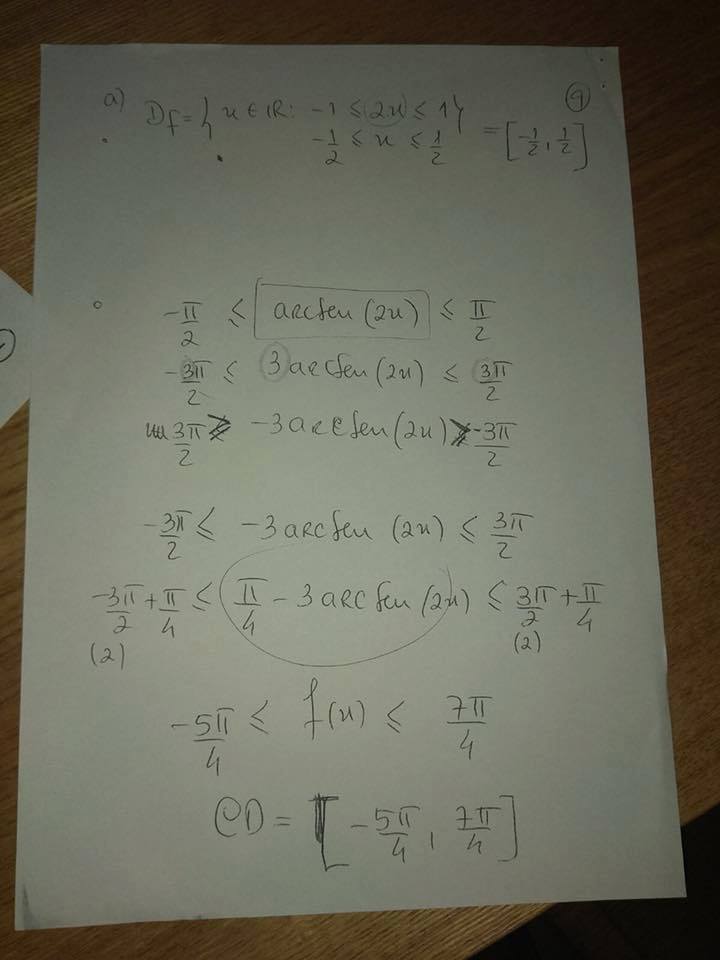 a) Df = { x ∈ IR: -1 ≤ (2x) ≤ 1}
-1/2 ≤ x ≤ 1/2 = [-1/2, 1/2]
-π/2 ≤ arcsen (2x) ≤ π/2
-3π/2 ≤ 3 arcsen (2x) ≤ 3π/2
3π/2 ≥ -3 arcsen (2x) ≥ -3π/2
-3π/2 ≤ -3 arcsen (2x) ≤ 3π/2
-3π/2 + π/4 ≤ π/4 - 3 arcsen (2x) ≤ 3π/2 + π/4
(2) (2)
-5π/4 ≤ f(x) ≤ 7π/4
CD = [-5π/4, 7π/4]